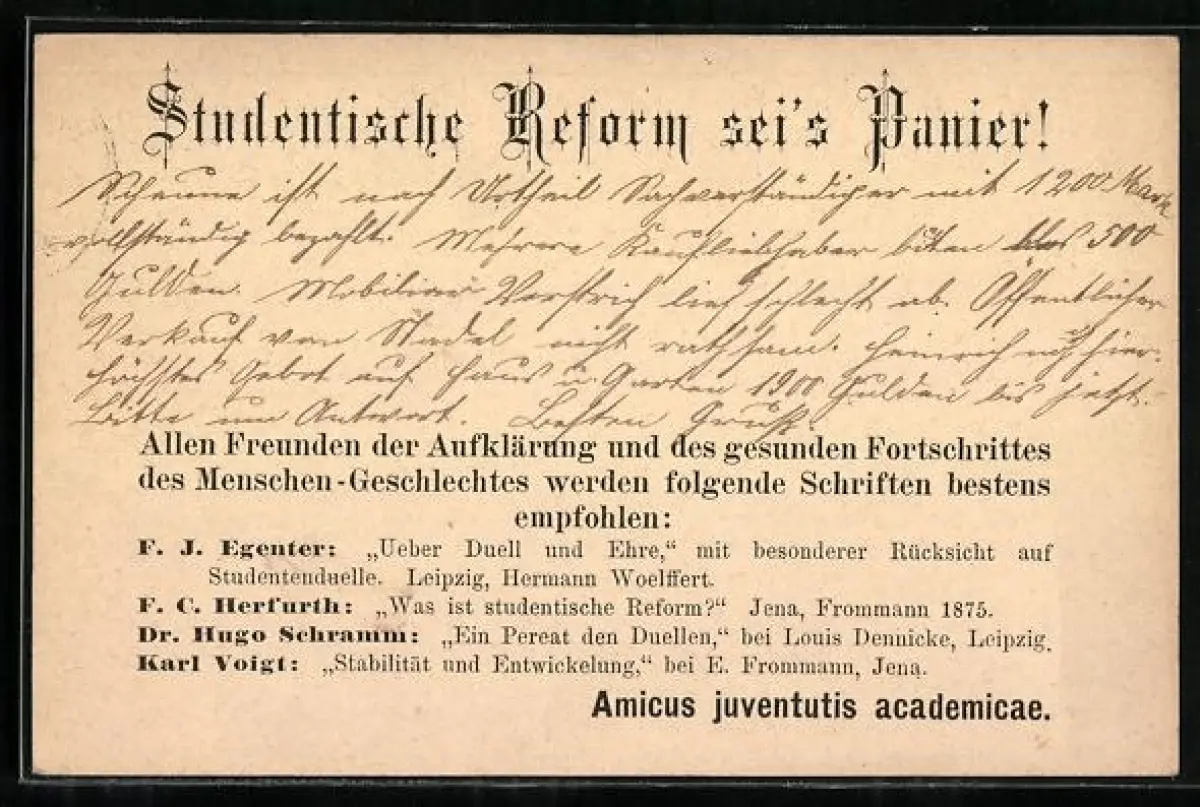 Studentische Reform sei's Panier!
Scheune ist nach Urtheil Sachverständiger mit 1200 Mark
vollständig bezahlt. Mehrere Kaufliebhaber bieten 500
Gulden. Mobiliar Verstrich lief schlecht ab. Öffentlicher
Verkauf von Stadel nicht rathsam. Heinrich noch hier.
Höchstes Gebot auf Haus u. Garten 1900 Gulden bis jetzt.
Bitte um Antwort. Besten Gruß.
Allen Freunden der Aufklärung und des gesunden Fortschrittes
des Menschen-Geschlechtes werden folgende Schriften bestens
empfohlen:
F. J. Egenter: „Ueber Duell und Ehre,“ mit besonderer Rücksicht auf
Studentenduelle. Leipzig, Hermann Woelffert.
F. C. Herfurth: „Was ist studentische Reform?“ Jena, Frommann 1875.
Dr. Hugo Schramm: „Ein Pereat den Duellen,“ bei Louis Dennicke, Leipzig.
Karl Voigt: „Stabilität und Entwickelung,“ bei E. Frommann, Jena.
Amicus juventutis academicae.